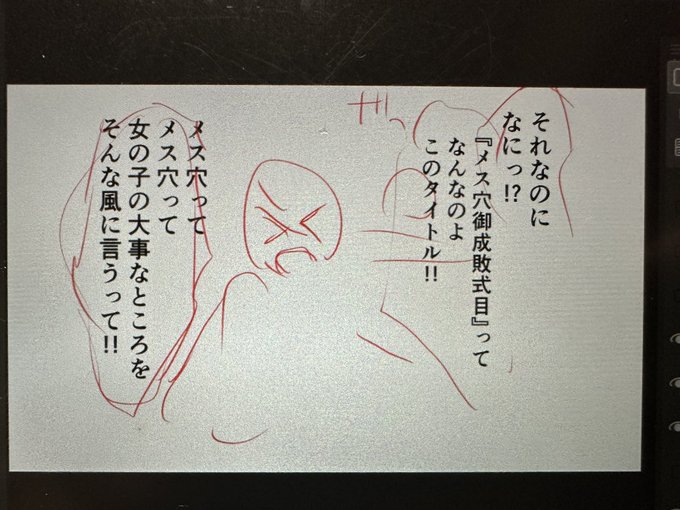 それなのに
なにっ!?
『メス穴御成敗式目』って
なんなのよ
このタイトル!!
ガッ
メス穴って
メス穴って
女の子の大事なところを
そんな風に言うって!!